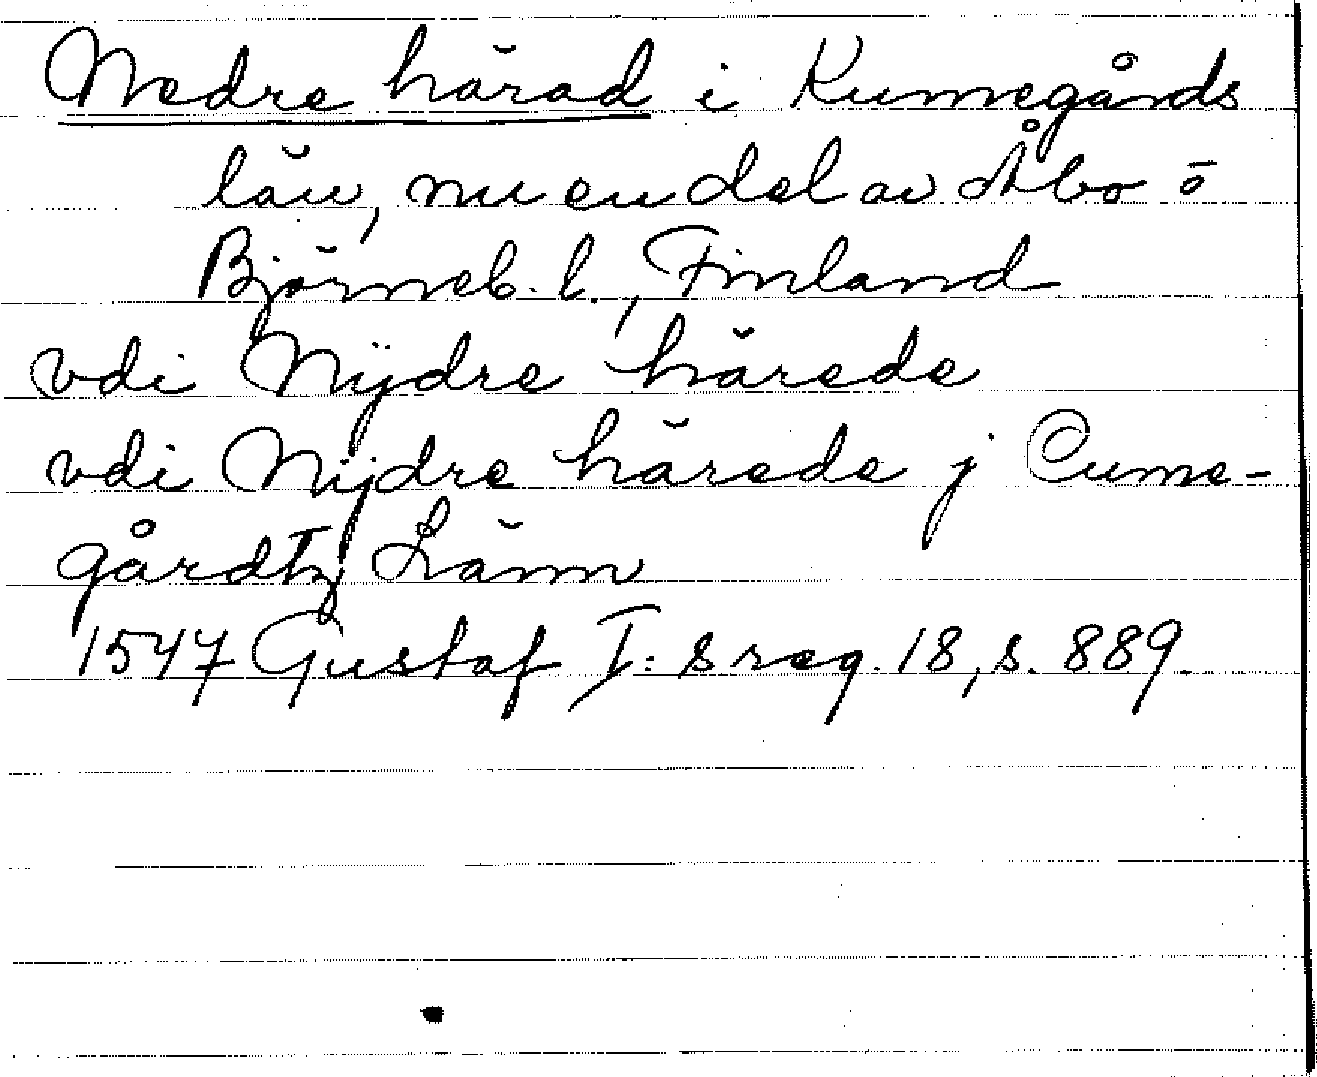 Nedre härad i Kumegårds
län, nu en del av Åbo o
Björneb. l., Finland
vdi Nijdre härede
vdi Nijdre härede j Cume-
gårdtz Länn
1547 Gustaf I:s reg. 18, s. 889.